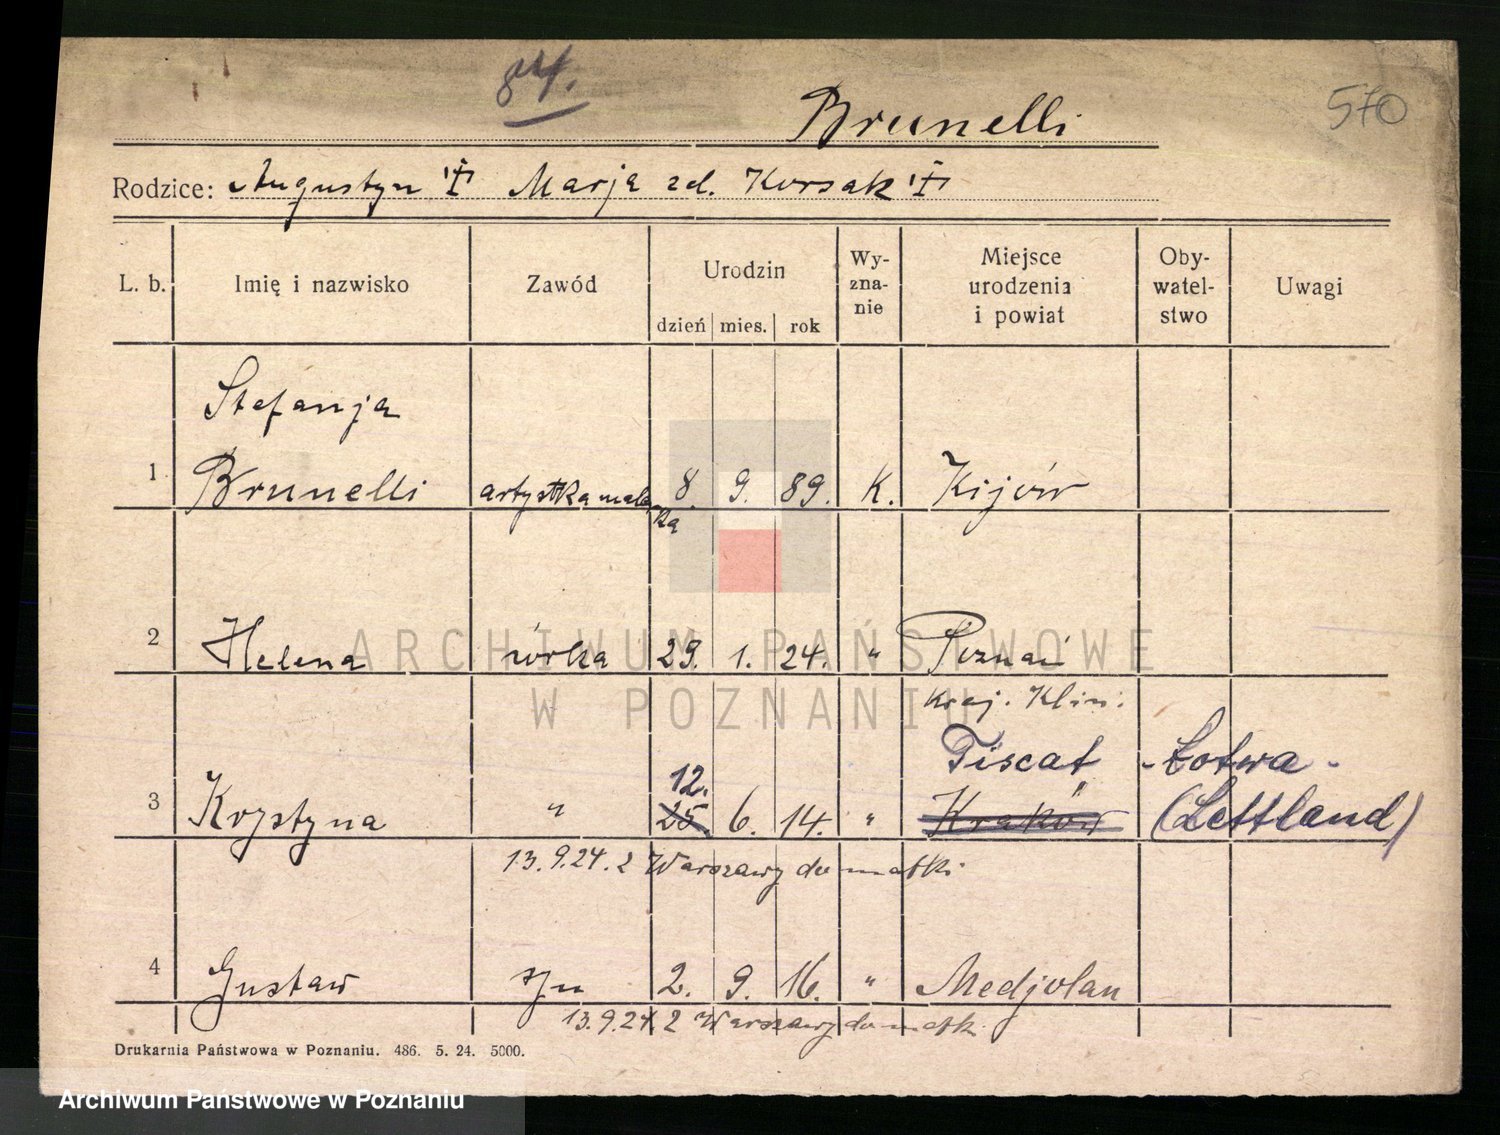 84.
Brunelli
570
Rodzice: Augustyn † Marja zd. Korsak †
L. b. Imię i nazwisko Zawód Urodzin dzień mies. rok Wyznanie Miejsce urodzenia i powiat Obywatelstwo Uwagi
Stefanja
1 Brunelli artystka malarka 8. 9. 89. K. Kijów
2 Helena córka 29. 1. 24. " Poznań
Kraj. Klin.
12. Tiscat - Łotwa -
3 Krystyna " 25. 6. 14. " Kraków (Lettland)
13.9.24. z Warszawy do matki
4 Gustaw syn 2. 9. 16. " Medjolan
13.9.24 z Warszawy do matki
Drukarnia Państwowa w Poznaniu. 486. 5. 24. 5000.
ARCHIWUM PAŃSTWOWE
W POZNANIU
Archiwum Państwowe w Poznaniu